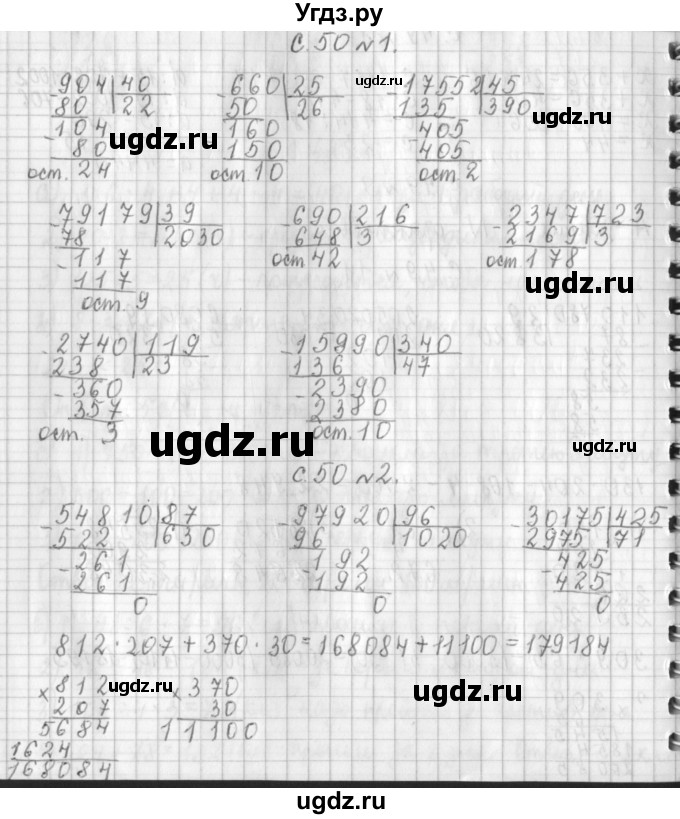 Угдз.ру
с. 50 №1.
904 | 40   660 | 25   17552 | 45
80 | 22   50 | 26   135 | 390
104   160   405
80   150   405
ост. 24   ост. 10   ост 2
79179 | 39   690 | 216   2347 | 723
78 | 2030   648 | 3   2169 | 3
117   ост 42   ост. 178
117
ост. 9
2740 | 119   15990 | 340
238 | 23   136 | 47
360   2390
357   2380
ост. 3   ост. 10
с. 50 №2.
54810 | 87   97920 | 96   30175 | 425
522 | 630   96 | 1020   2975 | 71
261   192   425
261   192   425
0   0   0
812 · 207 + 370 · 30 = 168084 + 11100 = 179184
× 812   × 370
207   30
5684   11100
1624
168084
ugdz.ru
ugdz.ru
ugdz.ru
ugdz.ru
ugdz.ru
ugdz.ru
ugdz.ru
ugdz.ru
ugdz.ru
ugdz.ru
ugdz.ru
ugdz.ru